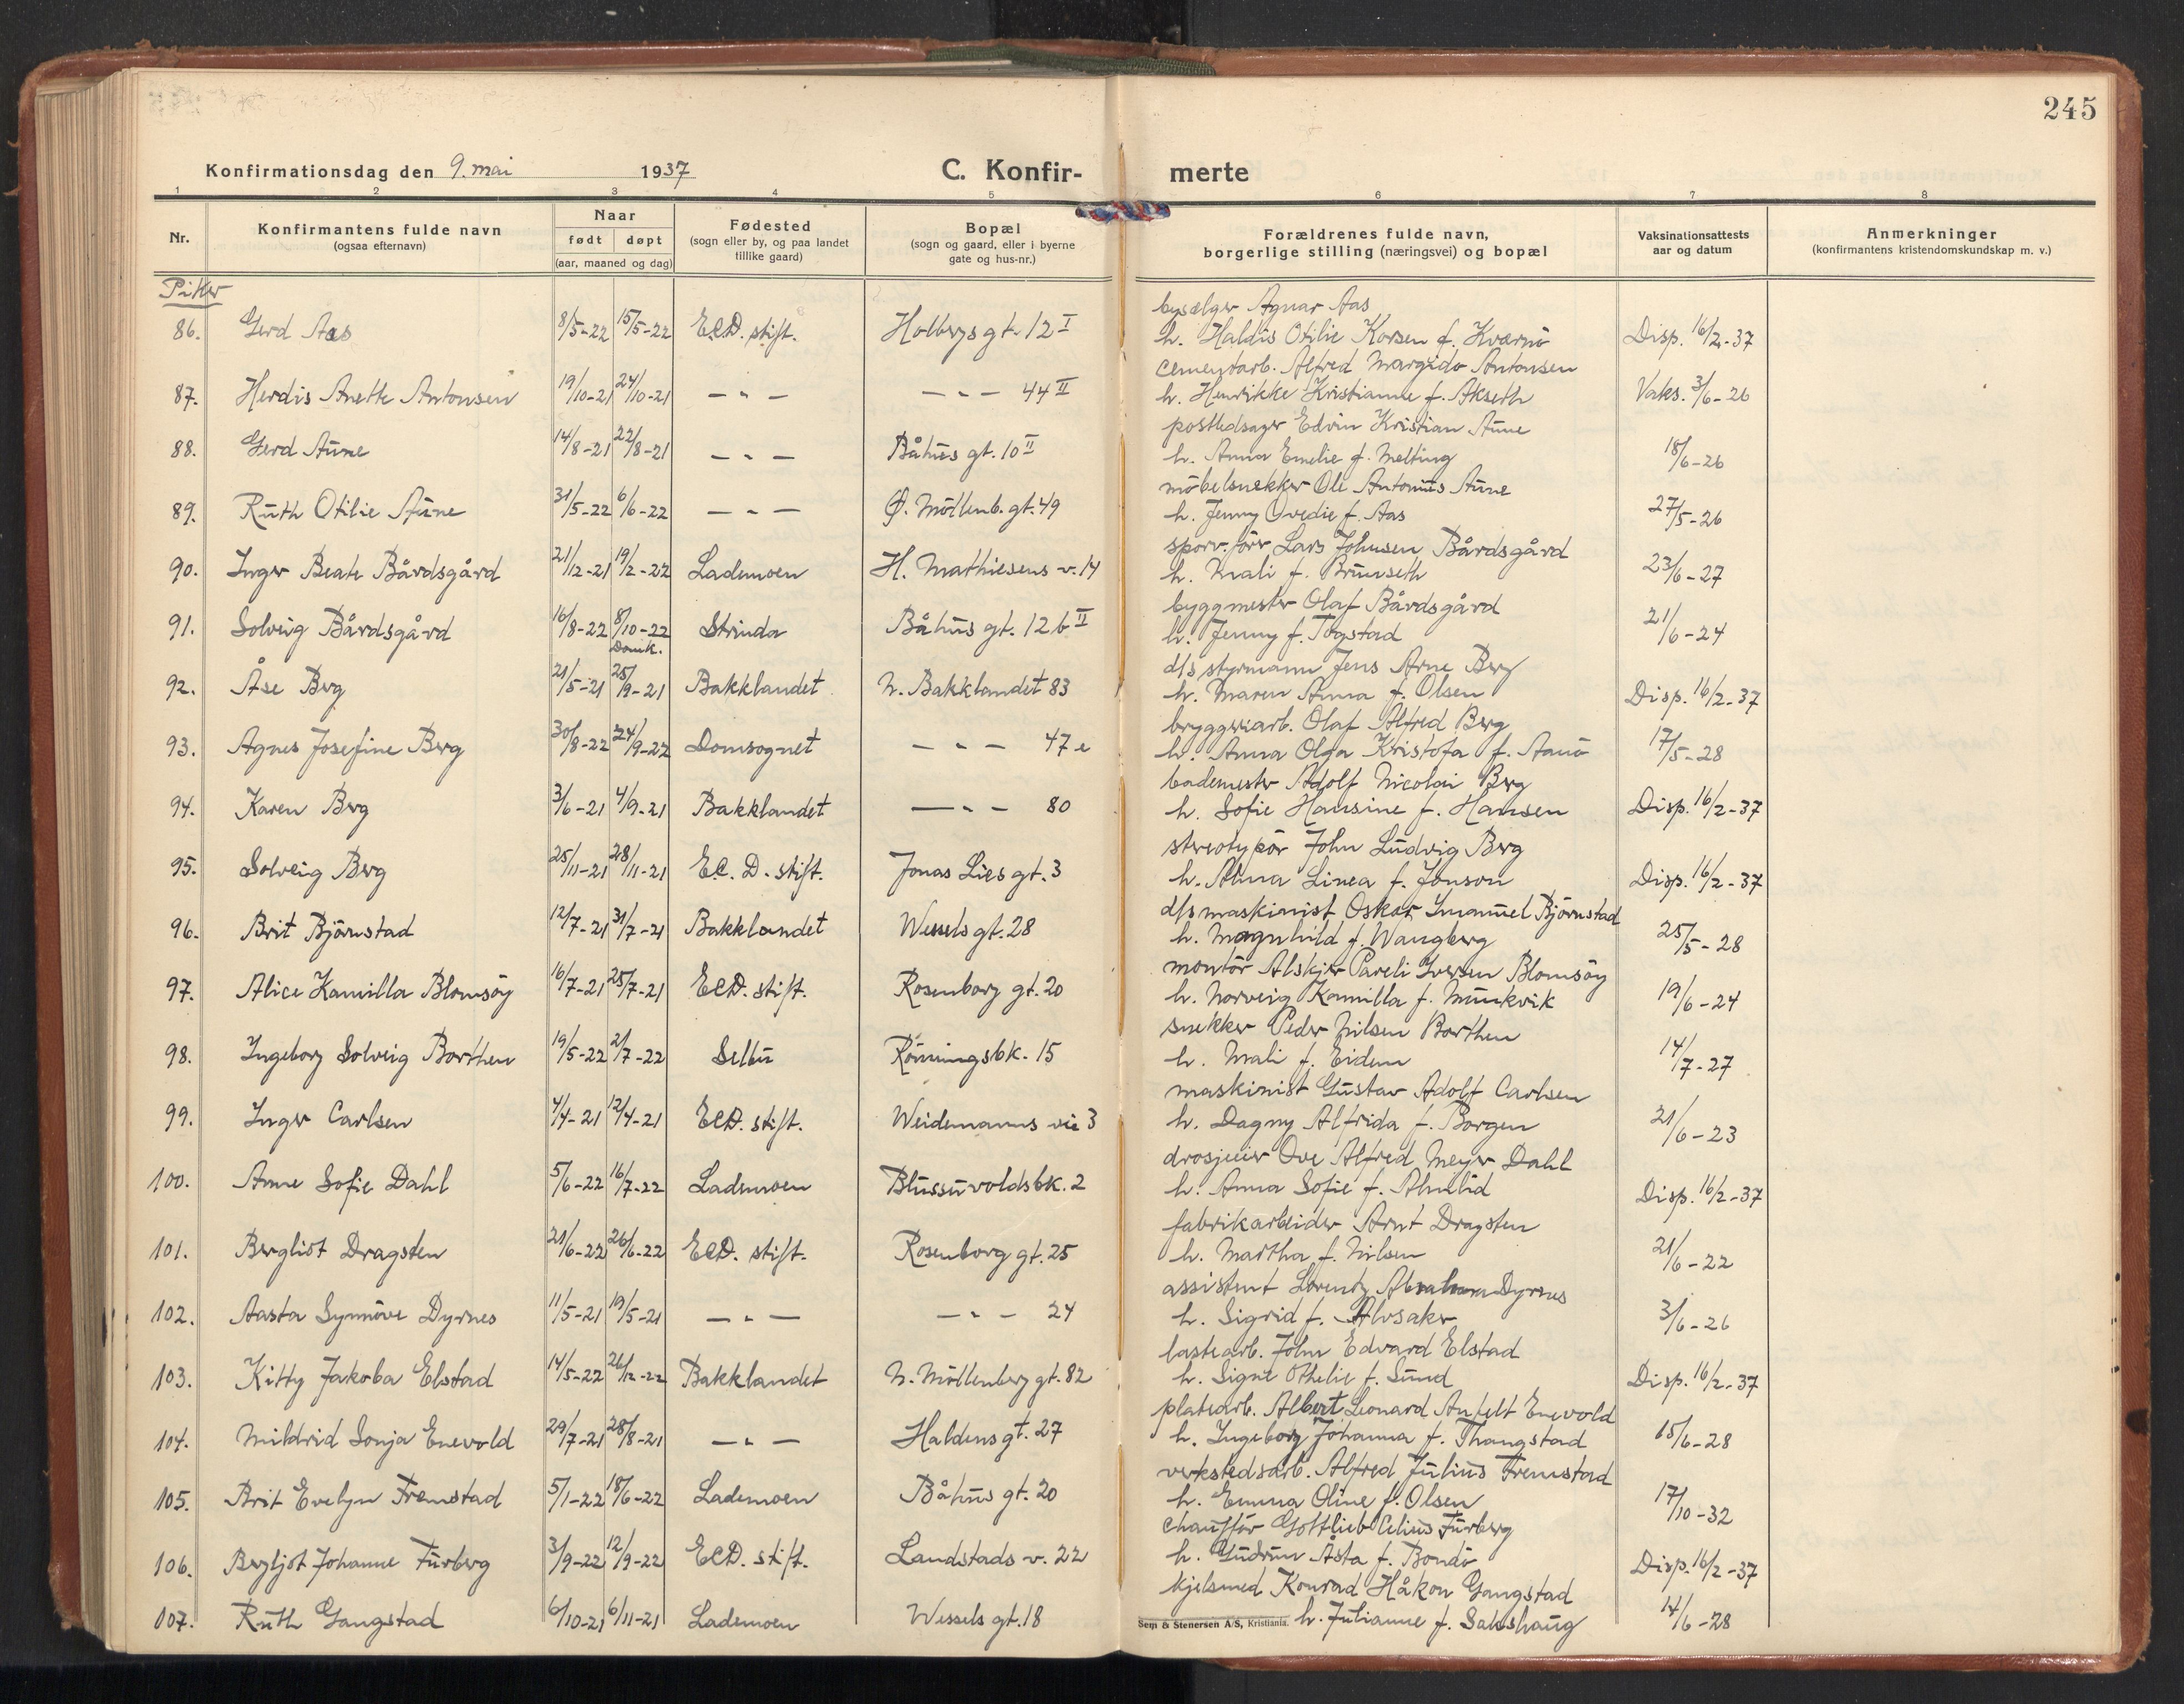 245
Konfirmationsdag den 9. mai 1937
C. Konfir- merte
1 2 3 4 5 6 7 8
Nr.
Konfirmantens fulde navn
(ogsaa efternavn)
Naar
født døpt
(aar, maaned og dag)
Fødested
(sogn eller by, og paa landet
tillike gaard)
Bopæl
(sogn og gaard, eller i byerne
gate og hus-nr.)
Forældrenes fulde navn,
borgerlige stilling (næringsvei) og bopæl
Vaksinationsattests
aar og datum
Anmerkninger
(konfirmantens kristendomskundskap m. v.)
Piker
bysælger Agnar Aas
86. Gerd Aas 8/5-22 15/5-22 E.C.D. stift. Holbergs gt. 12 I h. Haldis Otilie Korsen f. Kværnö Disp. 16/2-37
cementarb. Alfred Margido Antonsen
87. Herdis Anette Antonsen 19/10-21 24/10-21 — " — — " — 44 II h. Henrikke Kristianne f. Akseth Vaks. 3/6-26
postledsager Edvin Kristian Aune
88. Gerd Aune 14/8-21 22/8-21 — " — Båhus gt. 10 II h. Anna Emelie f. Melting 18/6-26
möbelsnekker Ole Antonius Aune
89. Ruth Otilie Aune 31/5-22 6/6-22 — " — Ø. Möllenb. gt. 49 h. Jenny Ovedie f. Aas 27/5-26
sporv. förer Lars Johnsen Bårdsgård
90. Inger Beate Bårdsgård 21/12-21 19/2-22 Lademoen H. Mathiesens v. 14 h. Mali f. Brunseth 23/6-27
byggmester Olaf Bårdsgård
91. Solveig Bårdsgård 16/8-22 8/10-22 Strinda Båhus gt. 12 b II h. Jenny f. Togstad 21/6-24
Domk.
d/s styrmann Jens Arne Berg
92. Åse Berg 21/5-21 25/9-21 Bakklandet N. Bakklandet 83 h. Maren Anna f. Olsen Disp. 16/2-37
bryggeriarb. Olaf Alfred Berg
93. Agnes Josefine Berg 30/8-22 24/9-22 Domsognet — " — 47 e h. Anna Olga Kristofa f. Aanö 17/5-28
bademester Adolf Nicolai Berg
94. Karen Berg 3/6-21 4/9-21 Bakklandet — " — 80 h. Sofie Hansine f. Hansen Disp. 16/2-37
stereotypör John Ludvig Berg
95. Solveig Berg 25/11-21 28/11-21 E.C. D. stift. Jonas Lies gt. 3 h. Alma Linea f. Jonson Disp. 16/2-37
d/s maskinist Oskar Imanuel Björnstad
96. Brit Björnstad 12/7-21 31/7-21 Bakklandet Wessels gt. 28 h. Magnhild f. Wangberg 25/5-28
montör Alskjer Pareli Iversen Blomsöy
97. Alice Kamilla Blomsöy 16/7-21 25/7-21 E.C.D. stift. Rosenborg gt. 20 h. Norveig Kamilla f. Munkvik 19/6-24
snekker Peder Nilsen Borthen
98. Ingeborg Solveig Borthen 19/5-22 2/7-22 Selbu Rönningsbk. 15 h. Mali f. Eidem 14/7-27
maskinist Gustav Adolf Carlsen
99. Inger Carlsen 4/4-21 12/4-21 E.C.D. stift. Weidemanns vei 3 h. Dagny Alfrida f. Borgen 21/6-23
drosjeeier Ove Alfred Meyer Dahl
100. Anne Sofie Dahl 5/6-22 16/7-22 Lademoen Blussuvoldsbk. 2 h. Anna Sofie f. Almlid Disp. 16/2-37
fabrikarbeider Arnt Dragsten
101. Bergliot Dragsten 21/6-22 26/6-22 E.C.D. stift. Rosenborg gt. 25 h. Martha f. Nilsen 21/6-22
assistent Lorentz Abraham Dyrnes
102. Aasta Synnöve Dyrnes 11/5-21 19/5-21 — " — — " — 24 h. Sigrid f. Alvsaker 3/6-26
lastearb. John Edvard Elstad
103. Kitty Jakoba Elstad 14/5-22 26/12-22 Bakklandet N. Möllenberg gt. 82 h. Signe Othelie f. Sund Disp. 16/2-37
platearb. Albert Leonard Enevold
104. Mildrid Sonja Enevold 29/7-21 28/8-21 — " — Haldens gt. 27 h. Ingeborg Johanna f. Thangstad 15/6-28
verkstedsarb. Alfred Julius Fremstad
105. Brit Evelyn Fremstad 5/1-22 18/6-22 Lademoen Båhus gt. 20 h. Emma Oline f. Olsen 17/10-32
chauffør Gottlieb Celius Furberg
106. Bergljot Johanne Furberg 3/9-22 12/9-22 E.C.D. stift. Landstads v. 22 h. Gudrun Åsta f. Bondö Disp. 16/2-37
kjelsmed Konrad Håkon Gangstad
107. Ruth Gangstad 6/10-21 6/11-21 Lademoen Wessels gt. 18 h. Julianne f. Sakshaug 14/6-28
Sem & Stenersen A/S, Kristiania.